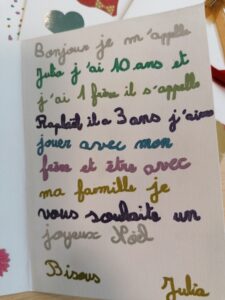 Bonjour je m'appelle
Julia j'ai 10 ans et
j'ai 1 frère il s'appelle
Raphaël il a 3 ans j'aime
jouer avec mon
frère et être avec
ma famille je
vous souhaite un
joyeux Noël
Bisous
Julia